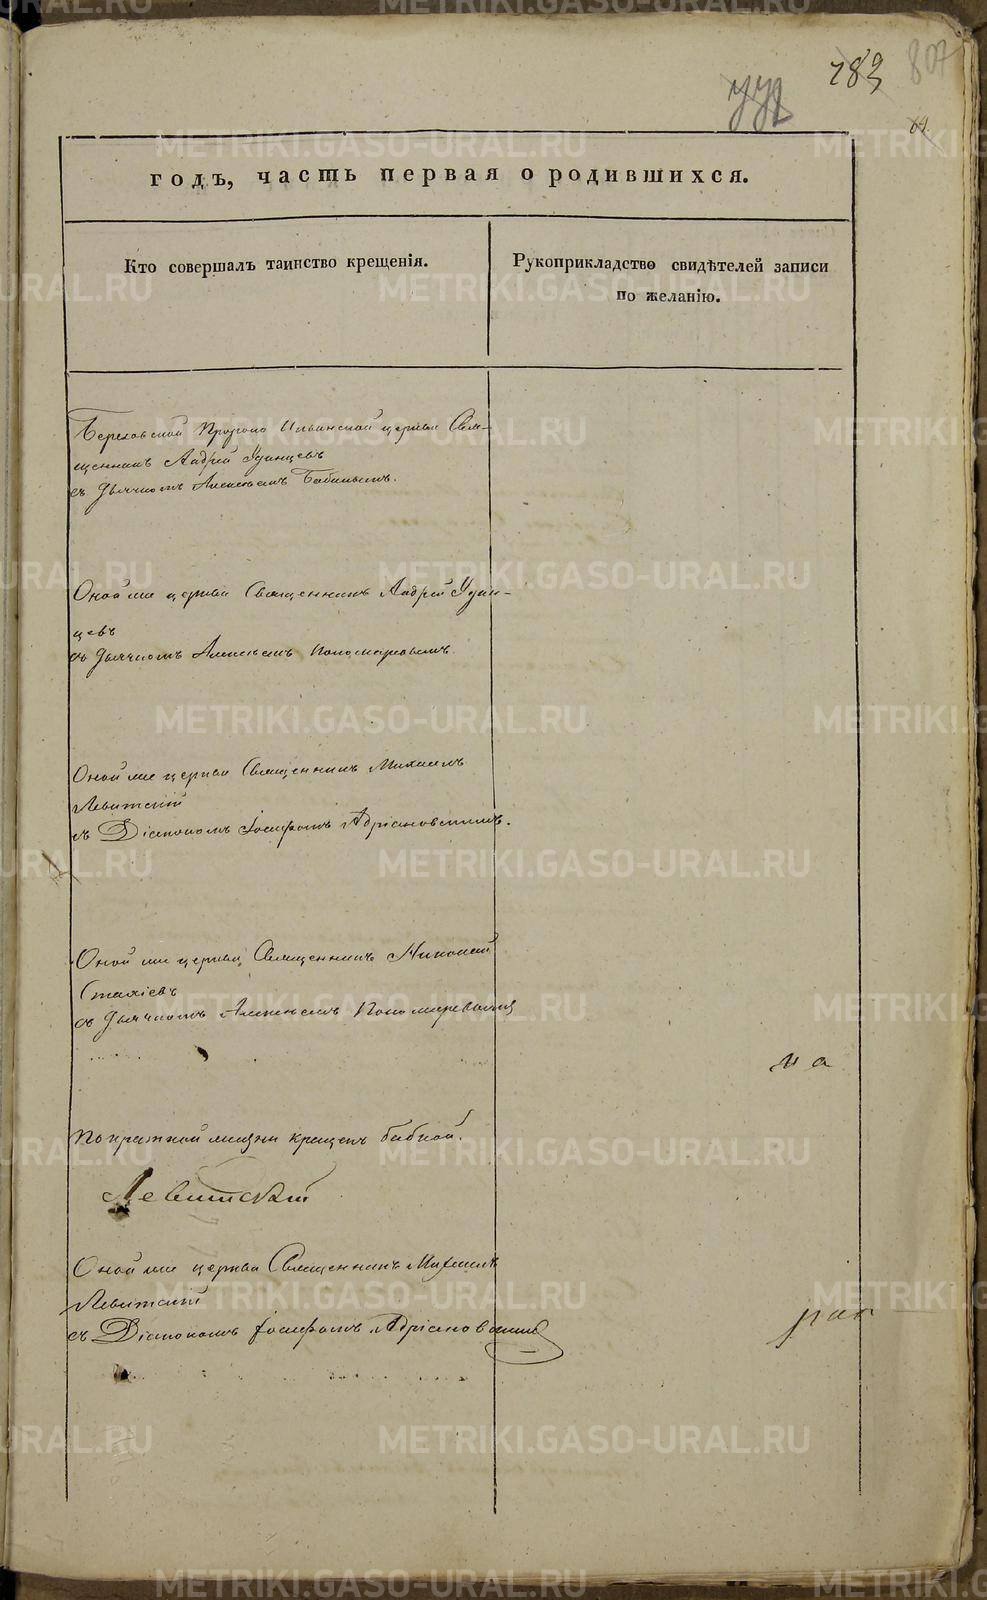 783 807
годъ, часть первая о родившихся.
Кто совершалъ таинство крещенія.
Рукоприкладство свидѣтелей записи
по желанію.
Пророко Ильинской церкви Свя-
щенникъ Андрей Удинцевъ
съ Дьячкомъ Алексѣемъ Бабинымъ.
Оной же церкви Священникъ Андрей Удин-
цевъ
съ Дьячкомъ Алексѣемъ Пономаревымъ.
Оной же церкви Священникъ Михаилъ
Левитскій
съ Діакономъ Іосифомъ Адріановскимъ.
Оной же церкви Священникъ Николай
съ Дьячкомъ Алексѣемъ Пономаревымъ
на
По краткой жизни крещенъ бабкой.
Левитскій
Оной же церкви Священникъ Михаилъ
Левитскій
съ Діакономъ Іосифомъ Адріановскимъ
METRIKI.GASO-URAL.RU